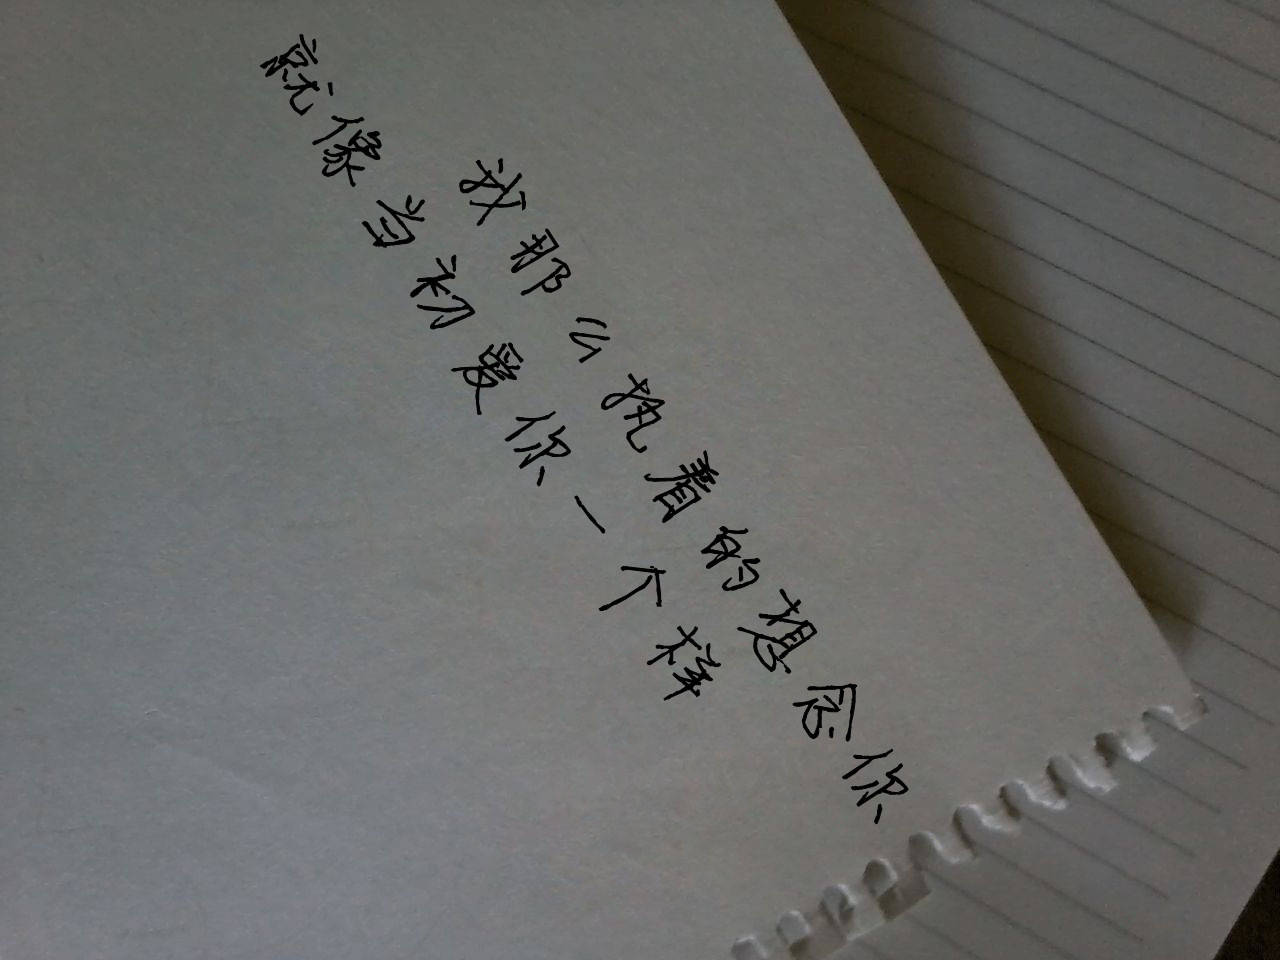 我那么执着的想念你
就像当初爱你一个样